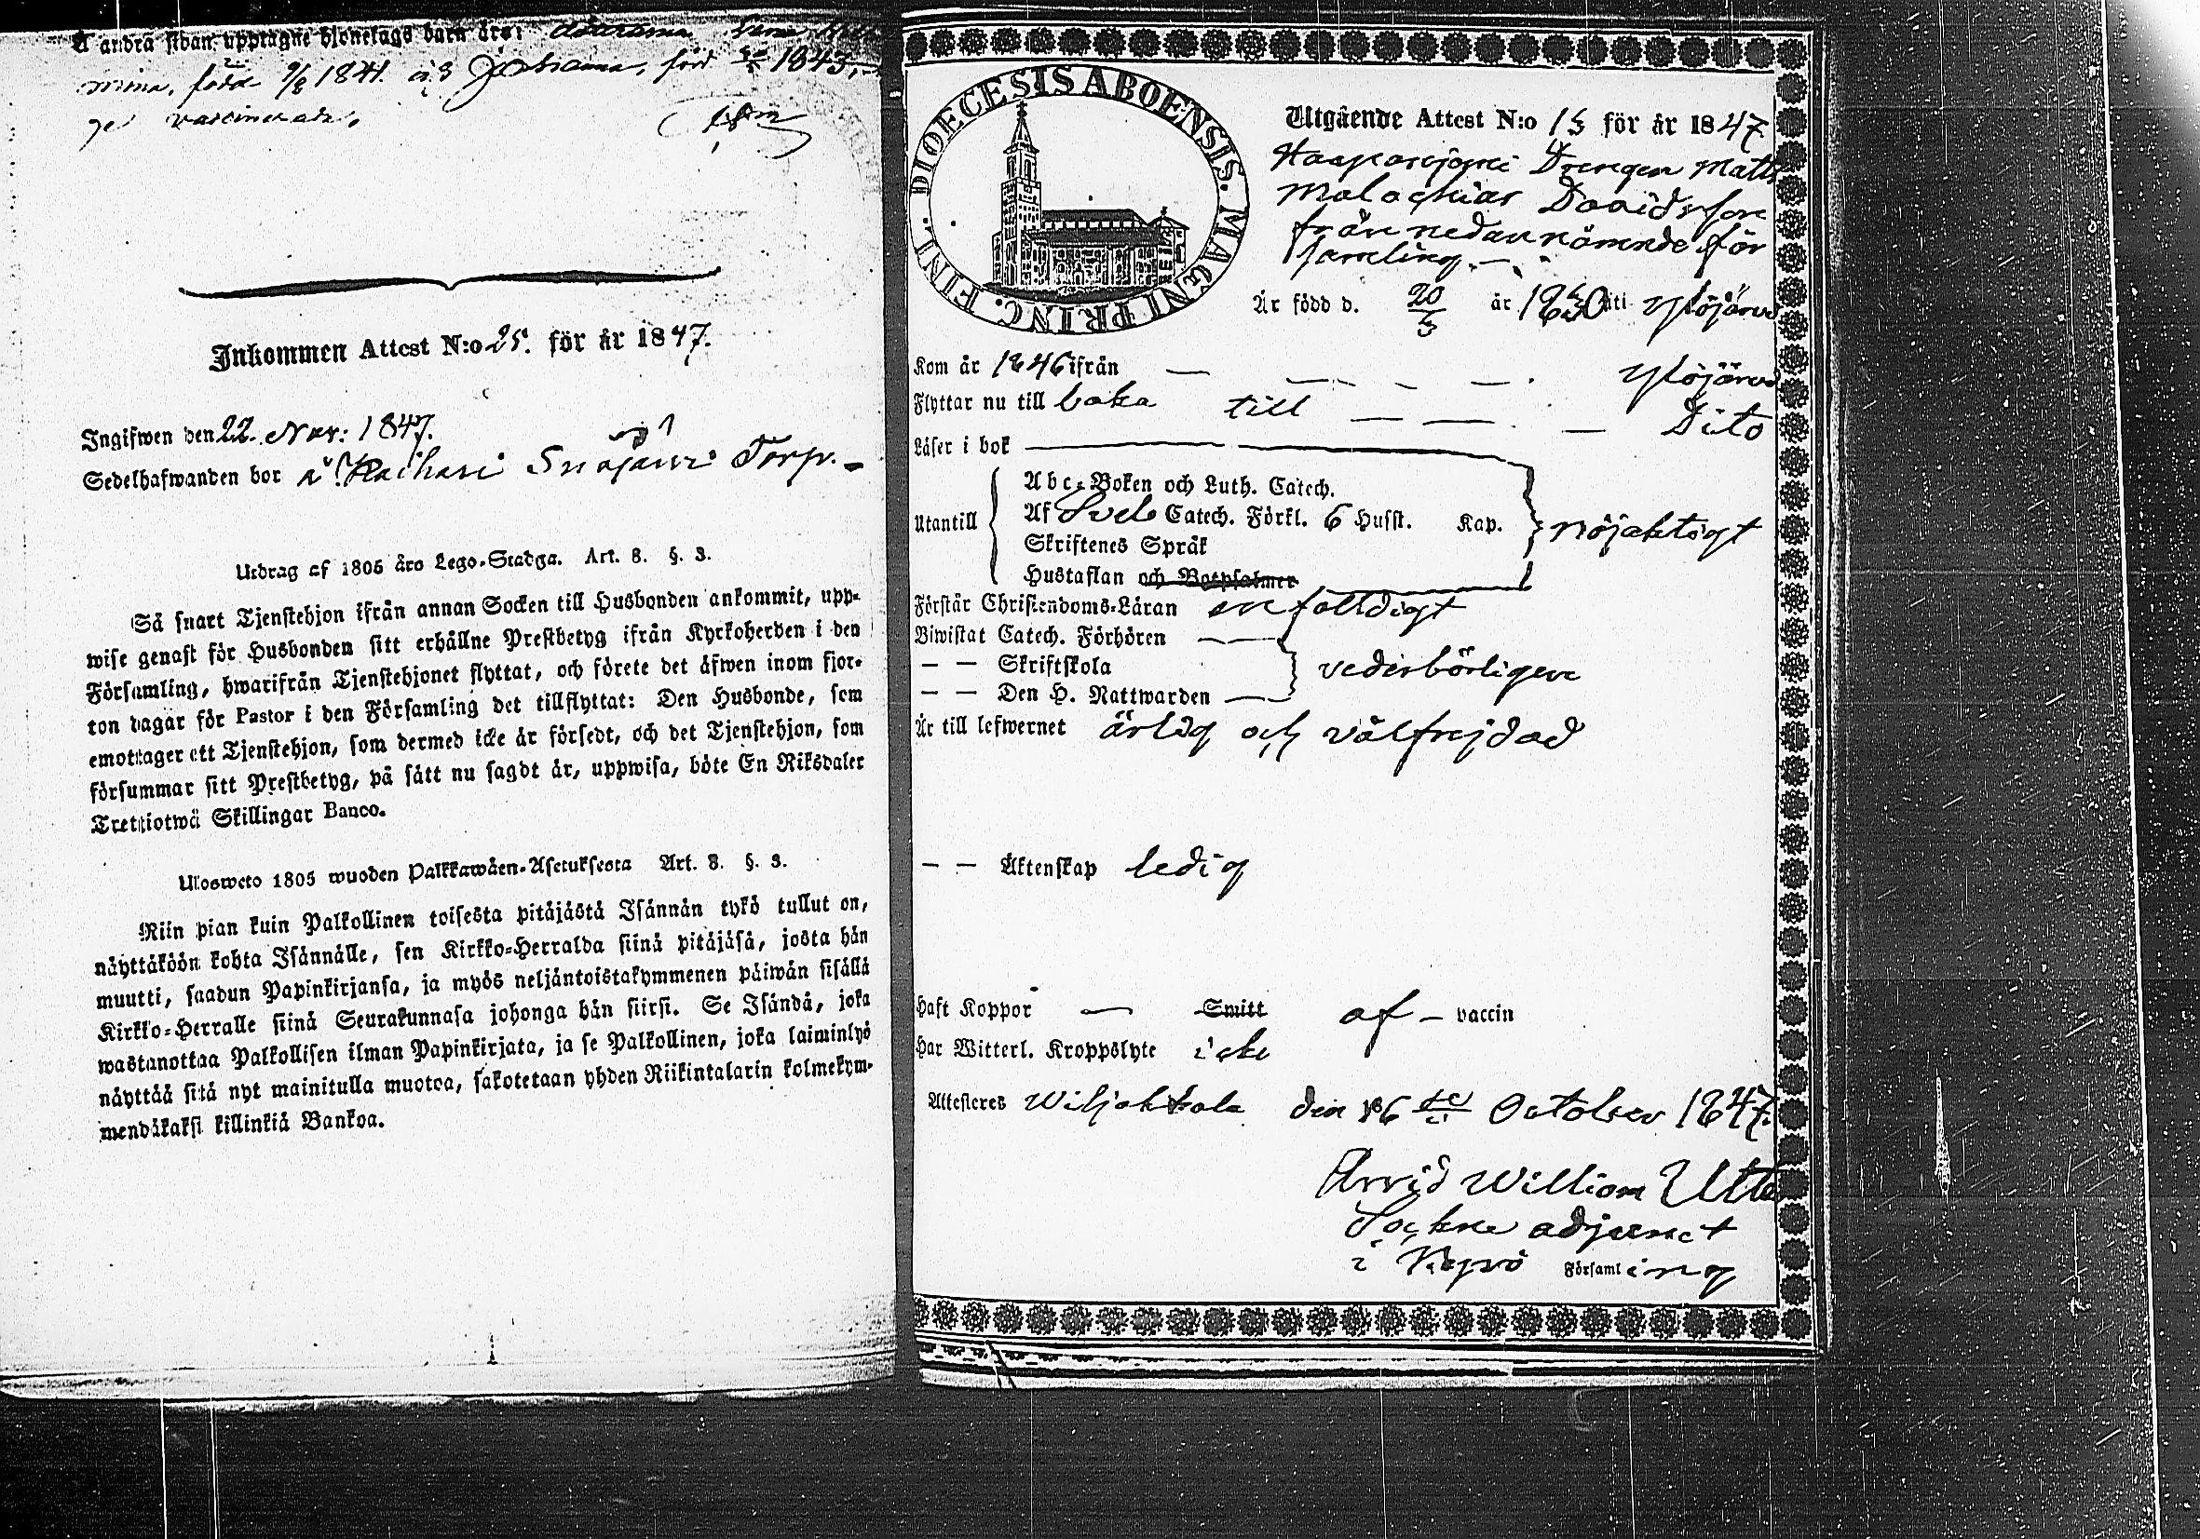 å andra sidan upptagne hjonelags barn äro:
mina, född 9/8 1841. o: Johanna, född 1843,
vaccinerade.
Inkommen Attest N:o 25. för år 1847.
Ingifwen den 22. Nov: 1847.
Sedelhafwanden bor å Raihari Torp.
Utdrag af 1805 års Lego-Stadga. Art. 8. §. 3.
Så snart Tjenstehjon ifrån annan Socken till Husbonden ankommit, upp-
wise genast för Husbonden sitt erhållne Prestbetyg ifrån Kyrkoherden i den
Församling, hwarifrån Tjenstehjonet flyttat, och förete det äfwen inom fjor-
ton dagar för Pastor i den Församling det tillflyttat: Den Husbonde, som
emottager ett Tjenstehjon, som dermed icke är försedt, och det Tjenstehjon, som
försummar sitt Prestbetyg, på sätt nu sagdt är, uppwisa, böte En Riksdaler
Trettiotwå Skillingar Banco.
Ulosweto 1805 wuoden Palkkawäen-Asetuksesta Art. 8. §. 3.
Niin pian kuin Palkollinen toisesta pitäjästä Isännän tykö tullut on,
näyttäköön kohta Isännälle, sen Kirkko-Herralda siinä pitäjäsä, josta hän
muutti, saadun Papinkirjansa, ja myös neljäntoistakymmenen päiwän sisällä
Kirkko-Herralle siinä Seurakunnasa johonga hän siirsi. Se Isändä, joka
wastanottaa Palkollisen ilman Papinkirjata, ja se Palkollinen, joka laiminlyö
näyttää sitä nyt mainitulla muotoa, sakotetaan yhden Riikintalarin kolmekym-
mendäkaksi killinkiä Bankoa.
DIOECESIS ABOENSIS. MAGNI PRINC. FINL.
Utgående Attest N:o 15 för år 1847.
Haapasejoki Drengen Matts
Malachias Davidsson
från nedannämnde för
samling. —
Är född d. 20/5 år 1830 uti Ylöjärvi
Kom år 1846 ifrån — — — — Ylöjärvi
Flyttar nu till baka till — — — Dito
Läser i bok
Abc-Boken och Luth. Catech.
Utantill Af Sveb. Catech. Förkl. 6 Husst. Kap. nöjaktigt
Skriftenes Språk
Hustaflan och Botpsalmer
Förstår Christendoms-Läran enfalldigt
Biwistat Catech. Förhören —
— — Skriftskola vederbörligen
— — Den H. Nattwarden —
Är till lefwernet ärlig och välfrejdad
— — Äktenskap ledig
Haft Koppor — Smitt af — vaccin
Har Witterl. Kroppslyte icke
Attesteres Wiljakkala den 16de October 1847.
Arvid William Utter
Sockne adjunct
i Kyrö Församling